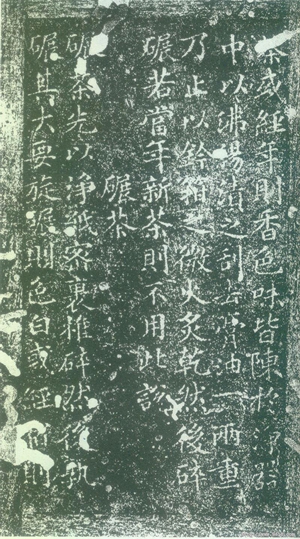 茶或經年則香色味皆陳於淨器
中以沸湯漬之刮去膚油一兩重
乃止以鈐箝之微火炙乾然後碎
碾若當年新茶則不用此說
碾茶
碾茶先以淨紙密裹椎碎然後孰
碾其大要旋碾則色白或經宿則